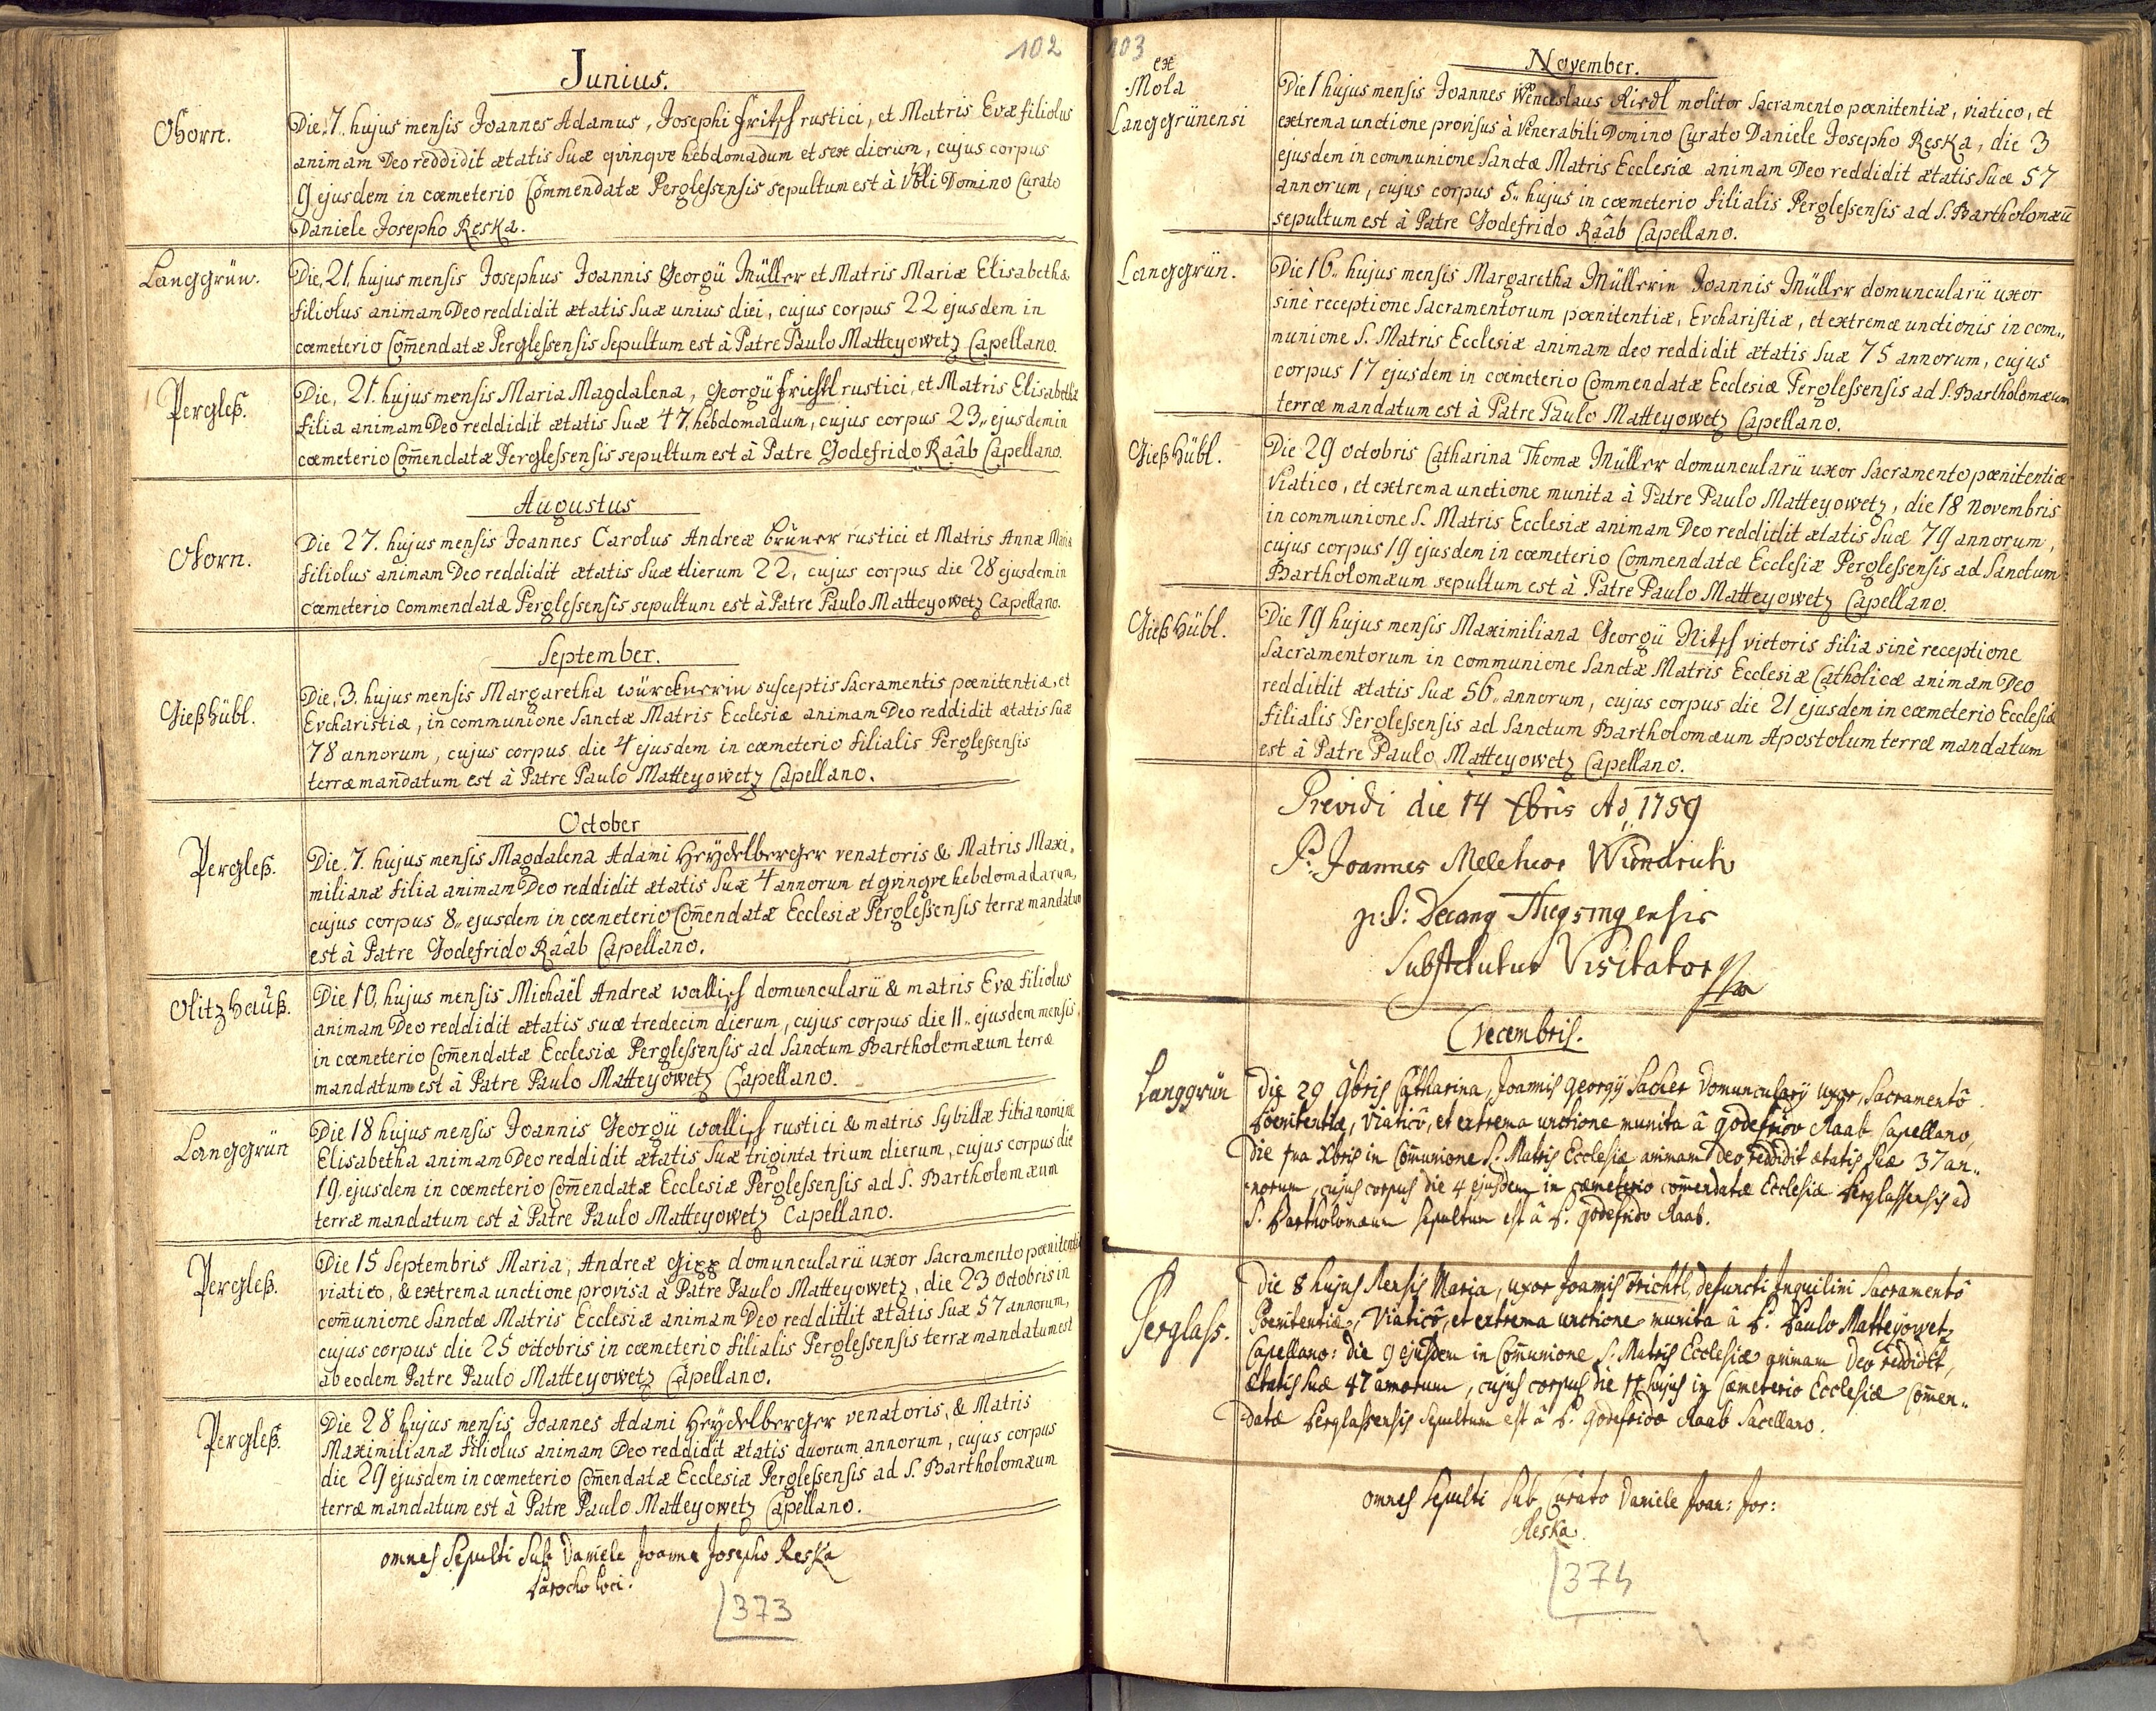 102
Junius.
Ohorn.
Die 7. hujus mensis Joannes Adamus, Josephi Fritsch rustici, et Matris Evæ filiolus
animam Deo reddidit ætatis suæ qvinqve hebdomadum et sex dierum, cujus corpus
9 ejusdem in cœmeterio Commendatæ Perglessensis sepultum est à Vbli Domino Curato
Daniele Josepho Reska.
Langgrün.
Die, 21. hujus mensis Josephus Joannis Georgii Müller et Matris Mariæ Elisabethæ
filiolus animam Deo reddidit ætatis suæ unius diei, cujus corpus 22 ejusdem in
cœmeterio Com̄endatæ Perglessensis sepultum est à Patre Paulo Matteyowetz Capellano.
Pergleß.
Die, 21. hujus mensis Maria Magdalena, Georgii Friehtl rustici, et Matris Elisabethæ
filia animam Deo reddidit ætatis suæ 47, hebdomadum, cujus corpus 23,, ejusdem in
cœmeterio Com̄endatæ Perglessensis sepultum est à Patre Godefrido Raâb Capellano.
Augustus
Ohorn.
Die 27. hujus mensis Joannes Carolus Andreæ Bruner rustici et Matris Annæ Mariæ
filiolus animam Deo reddidit ætatis suæ dierum 22, cujus corpus die 28 ejusdem in
cœmeterio commendatæ Perglessensis sepultum est à Patre Paulo Matteyowetz Capellano.
September.
Gießhübl.
Die, 3. hujus mensis Margaretha Würcknerin susceptis sacramentis pœnitentiæ, et
Evcharistiæ, in communione Sanctæ Matris Ecclesiæ animam Deo reddidit ætatis suæ
78 annorum, cujus corpus die 4 ejusdem in cœmeterio filialis Perglessensis
terræ mandatum est à Patre Paulo Matteyowetz Capellano.
October
Pergleß.
Die. 7. hujus mensis Magdalena Adami Heydelberger venatoris & Matris Maxi„
milianæ filia animam Deo reddidit ætatis suæ 4 annorum et qvinqve hebdomadarum,
cujus corpus 8,, ejusdem in cœmeterio Com̄endatæ Ecclesiæ Perglessensis terræ mandatum
est à Patre Godefrido Raâb Capellano.
Olitzhauß.
Die 10, hujus mensis Michaël Andreæ Wallisch domuncularii & matris Evæ filiolus
animam Deo reddidit ætatis suæ tredecim dierum, cujus corpus die 11,, ejusdem mensis,
in cœmeterio Com̄endatæ Ecclesiæ Perglessensis ad Sanctum Bartholomæum terræ
mandatum est à Patre Paulo Matteyowetz Capellano.
Langgrün
Die 18 hujus mensis Joannis Georgii Wallisch rustici & matris Sybillæ filia nomine
Elisabetha animam Deo reddidit ætatis suæ triginta trium dierum, cujus corpus die
19. ejusdem in cœmeterio Com̄endatæ Ecclesiæ Perglessensis ad S. Bartholomæum
terræ mandatum est à Patre Paulo Matteyowetz Capellano.
Pergleß.
Die 15 Septembris Maria, Andreæ Gigg domuncularii uxor Sacramento pœnitentiæ
viatico, & extrema unctione provisa à Patre Paulo Matteyowetz, die 23 octobris in
com̄unione Sanctæ Matris Ecclesiæ animam Deo reddidit ætatis suæ 57 annorum,
cujus corpus die 25 octobris in cœmeterio filialis Perglessensis terræ mandatum est
ab eodem Patre Paulo Matteyowetz Capellano.
Pergleß.
Die 28 hujus mensis Joannes Adami Heydelberger venatoris, & Matris
Maximilianæ filiolus animam Deo reddidit ætatis duorum annorum, cujus corpus
die 29 ejusdem in cœmeterio Com̄endatæ Ecclesiæ Perglessensis ad S. Bartholomæum
terræ mandatum est à Patre Paulo Matteyowetz Capellano.
omnes Sepulti Sub Daniele Joanne Josepho Reska
Parocho loci.
373
103
November.
ex
Mola
Langgrünensi
Die 1 hujus mensis Joannes Wenceslaus Riedl molitor sacramento pœnitentiæ, viatico, et
extrema unctione provisus à Venerabili Domino Curato Daniele Josepho Reska, die 3
ejusdem in communione Sanctæ Matris Ecclesiæ animam Deo reddidit ætatis suæ 57
annorum, cujus corpus 5,, hujus in cœmeterio filialis Perglessensis ad S. Bartholomæū
sepultum est à Patre Godefrido Raâb Capellano.
Langgrün.
Die 16,, hujus mensis Margaretha Müllerin Joannis Müller domuncularii uxor
sinè receptione Sacramentorum pœnitentiæ, Evcharistiæ, et extremæ unctionis in com„
munione S. Matris Ecclesiæ animam deo reddidit ætatis suæ 75 annorum, cujus
corpus 17 ejusdem in cœmeterio Commendatæ Ecclesiæ Perglessensis ad S. Bartholomæum
terræ mandatum est à Patre Paulo Matteyowetz Capellano.
Gießhübl.
Die 29 octobris Catharina Thomæ Müller domuncularii uxor Sacramento pœnitentiæ
Viatico, et extrema unctione munita à Patre Paulo Matteyowetz, die 18 Novembris
in communione S. Matris Ecclesiæ animam Deo reddidit ætatis suæ 79 annorum,
cujus corpus 19 ejusdem in cœmeterio Commendatæ Ecclesiæ Perglessensis ad Sanctum
Bartholomæum sepultum est à Patre Paulo Matteyowetz Capellano.
Gießhübl.
Die 19 hujus mensis Maximiliana Georgii Nitsch vietoris filia sinè receptione
Sacramentorum in communione Sanctæ Matris Ecclesiæ Catholicæ animam Deo
reddidit ætatis suæ 56,, annorum, cujus corpus die 21 ejusdem in cœmeterio Ecclesiæ
filialis Perglessensis ad Sanctum Bartholomæum Apostolum terræ mandatum
est à Patre Paulo Matteyowetz Capellano.
Previdi die 14 Xbris Ao 1759
P. Joannes Melchior
Substitutus Visitator
Decembris.
Langgrün
Die 29 9bris Catharina, Joannis Georgij Sacher Domuncularij uxor, Sacramentô
Poenitentiæ, Viaticô, et extrema unctione munita â Godefrido Raab Capellano,
Die Xbris in Com̄unione S. Matris Ecclesiæ animam Deo reddidit ætatis suæ 37 an„
norum, cujus corpus die 4 ejusdem in cœmeterio com̄endatæ Ecclesiæ Perglassensis ad
S. Bartholomæum Sepultum est â P. Godefrido Raab.
Perglass.
Die 8 hujus Mensis Maria, uxor Joannis Trichtl, defuncti Inquilini Sacramentô
Poenitentiæ, Viaticô, et extrema unctione munita â P. Paulo Matteyowetz
Capellano: die 9 ejusdem in Com̄unione S. Matris Ecclesiæ animam Deo reddidit,
ætatis suæ 47 annorum, cujus corpus die 11 hujus in Cœmeterio Ecclesiæ Com̄en„
datæ Perglassensis sepultum est â P. Godefrido Raab Sacellano.
omnes Sepulti Sub Curato Daniele Joan: Jos:
Reska.
374